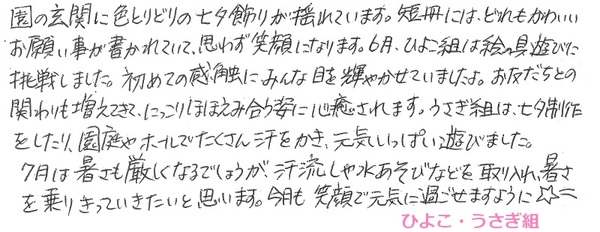 園の玄関に色とりどりの七夕飾りが揺れています。短冊には、どれもかわいい
お願い事が書かれていて、思わず笑顔になります。6月、ひよこ組は絵の具遊びに
挑戦しました。初めての感触にみんな目を輝やかせていましたよ。お友だちとの
関わりも増えてきて、にっこりほほえみ合う姿に心癒されます。うさぎ組は、七夕制作
をしたり、園庭やホールでたくさん汗をかき、元気いっぱい遊びました。
7月は暑さも厳しくなるでしょうが、汗流しや水あそびなどを取り入れ、暑さ
を乗りきっていきたいと思います。今月も笑顔で元気に過ごせますように☆彡
ひよこ・うさぎ組